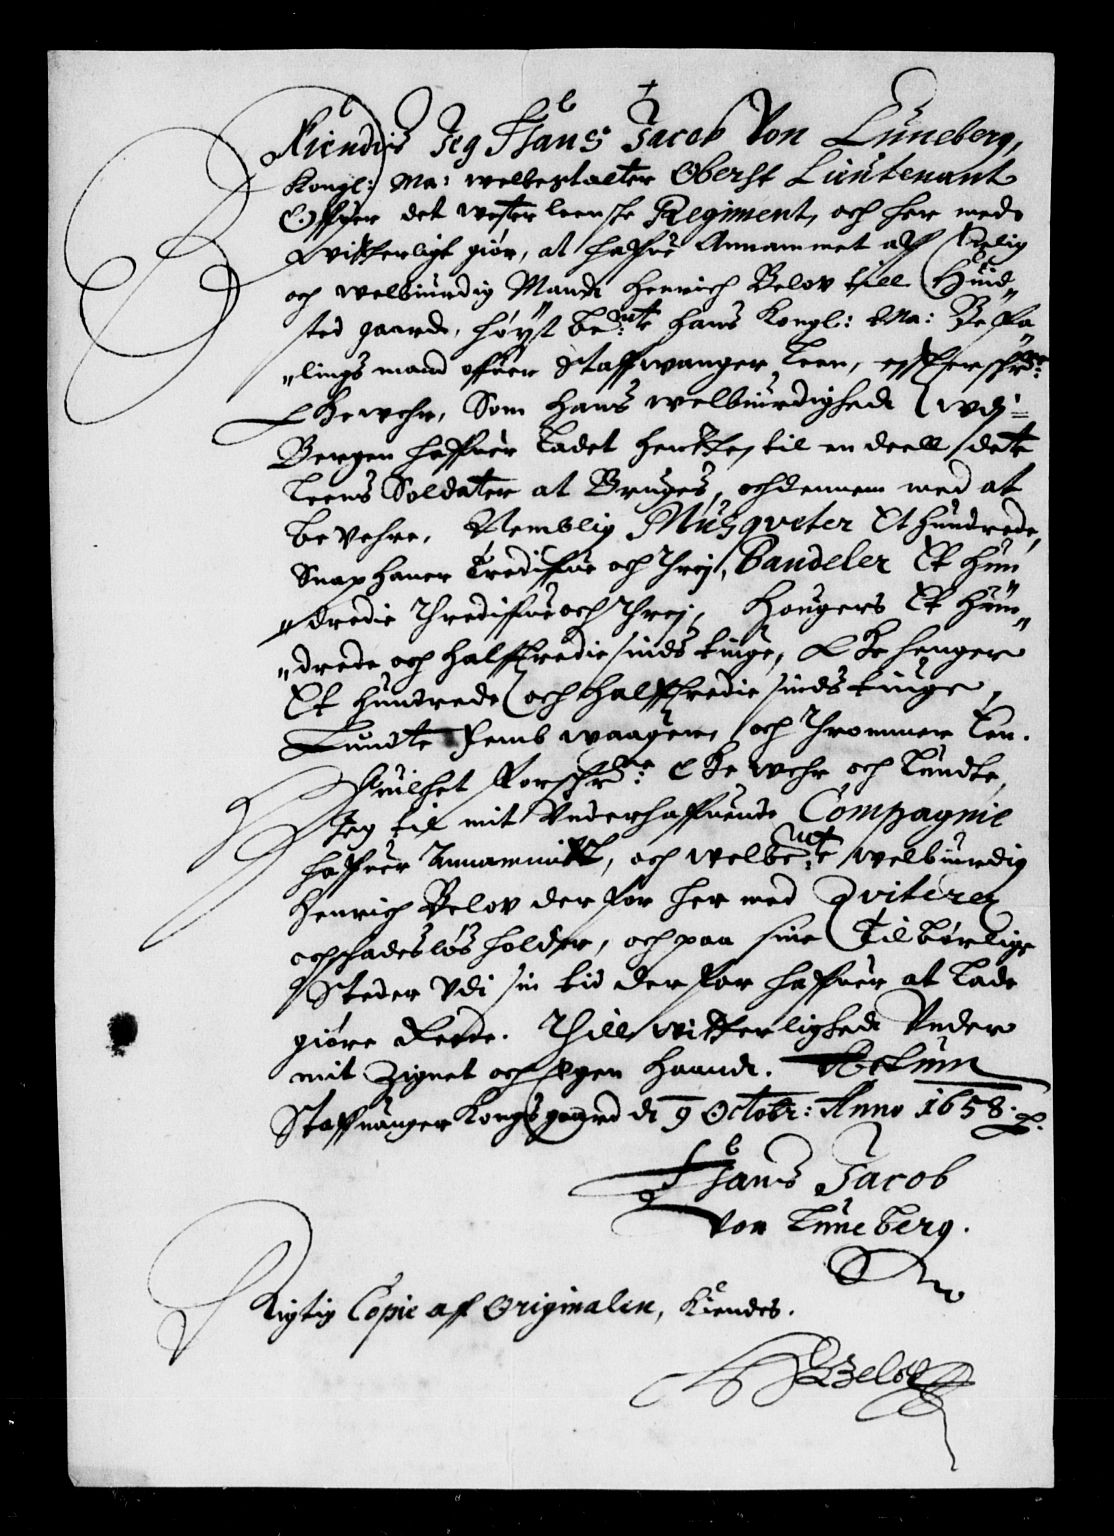 Kiendis Jeg Hans Jacob Von Lüneberg,
Kongl: Ma: welbestalter Oberst Lieutenant
Offuer det westerleenske Regiment, och her med
Witterligt giør, at haffue Annammet aff Erlig
och welbiurdig Mand Henrich Below till Hund„
sted gaard, høyst be:te Hans Kongl: Ma: Befa„
„lings mand offuer Staffwanger Leen, effterschr:ne
Gewehr, Som Hans welbiurdighed wdj
Bergen haffuer ladet hentte, til en deell dette
Leens Soldater at Bruges, och dennem med at
bevehre, Nemblig Müsqveter Et hundrede,
Snaphaner Tredifue och Threj, Bandeler Et Hun
„drede Thredifue och Threj, Hougers Et Hun„
„drede och Halfftredie sinds tiuge, Gehenger
Et hundrede och Halfftredie sinds tiuge,
Lundte Femb waager, och Thrommer Een.
Huilchet Forschr:ne Gewehr och Lundte,
Jeg til mit Underhaffuende Compagnie
haffuer Annammitt, och welbe:te welbiurdig
Henrich Below der for her med Qviterer
och schadesløs holder, och paa sine Tilbørlige
Steder Udi sin tid der for haffuer at lade
giøre Rede. Till witterlighed Under
mit Zignet och Egen Haand. Actum
Staffuanger Kongsgaard d 9 Octobr: Anno 1658.
Hans Jacob
Von Lüneberg.
Rigtig Copie aff Originalen, Kiendes.
HBelow